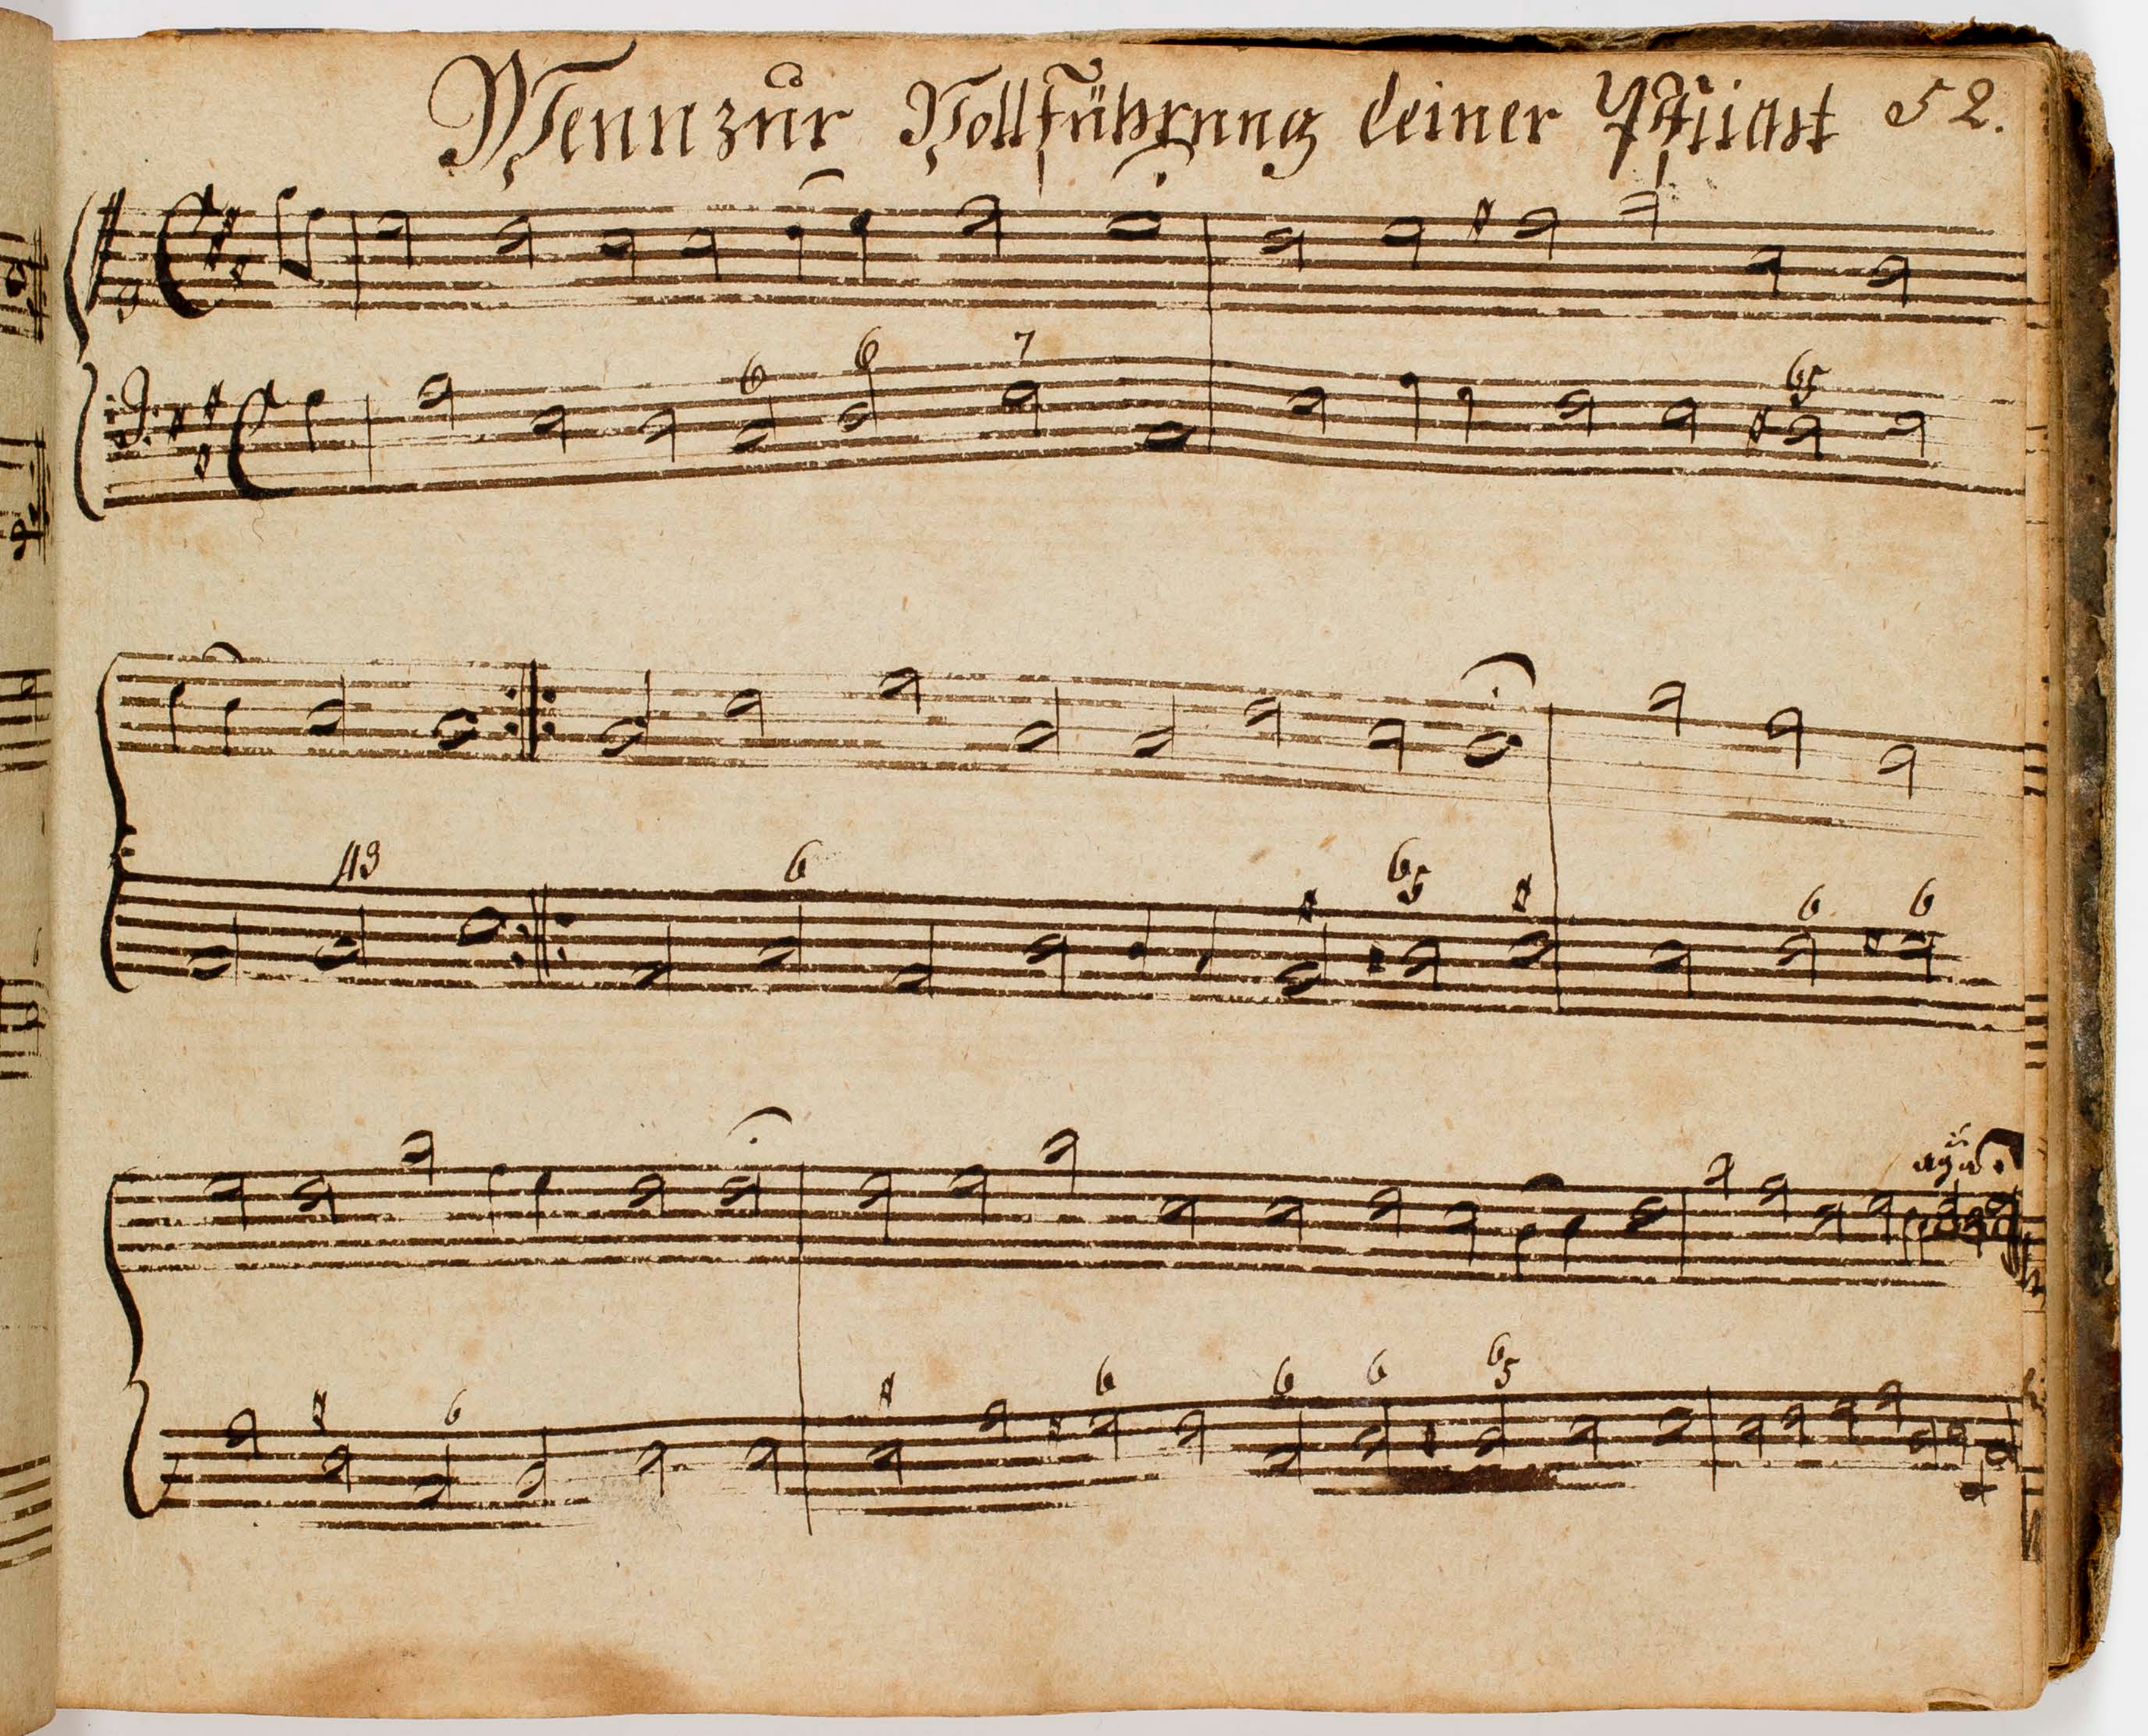 Wenn zur Vollführung deiner Pflicht 52.
6 6 7 65
43 6 65 6 6
6 6 6 6 65